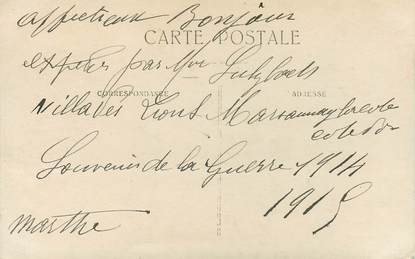 affectieux Bonjour
CARTE POSTALE
par
CORRESPONDANCE
ADRESSE
Villa les Lions Marsannay la cote
cote dor
Souvenir de la Guerre 1914
1915
Marthe